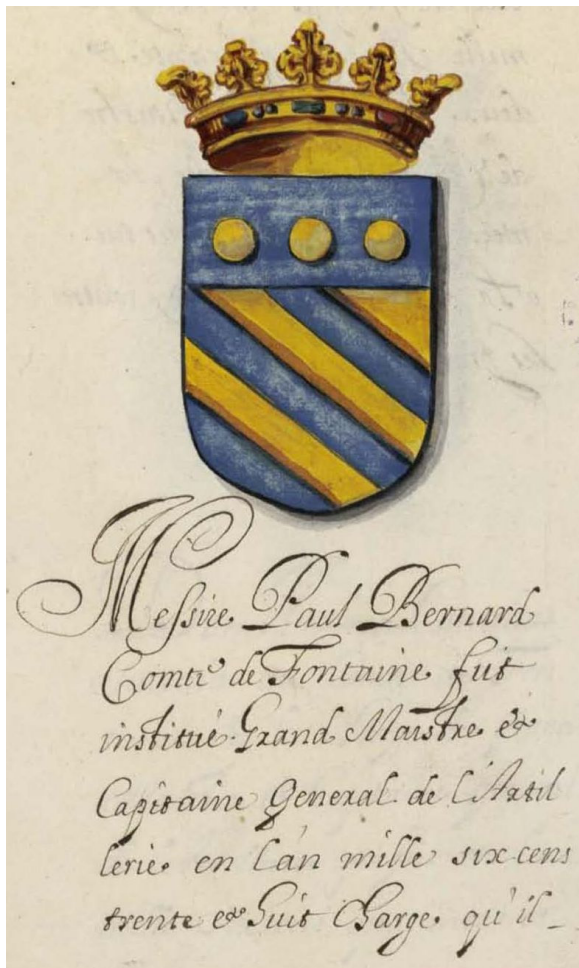 Messire Paul Bernard
Comte de Fontaine fut
institué Grand Maistre et
Capitaine General de l'Artil
lerie en l'an mille six cens
trente et huit Charge qu'il